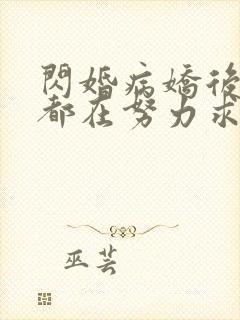 閃婚病嬌後
都在努力求
巫芸